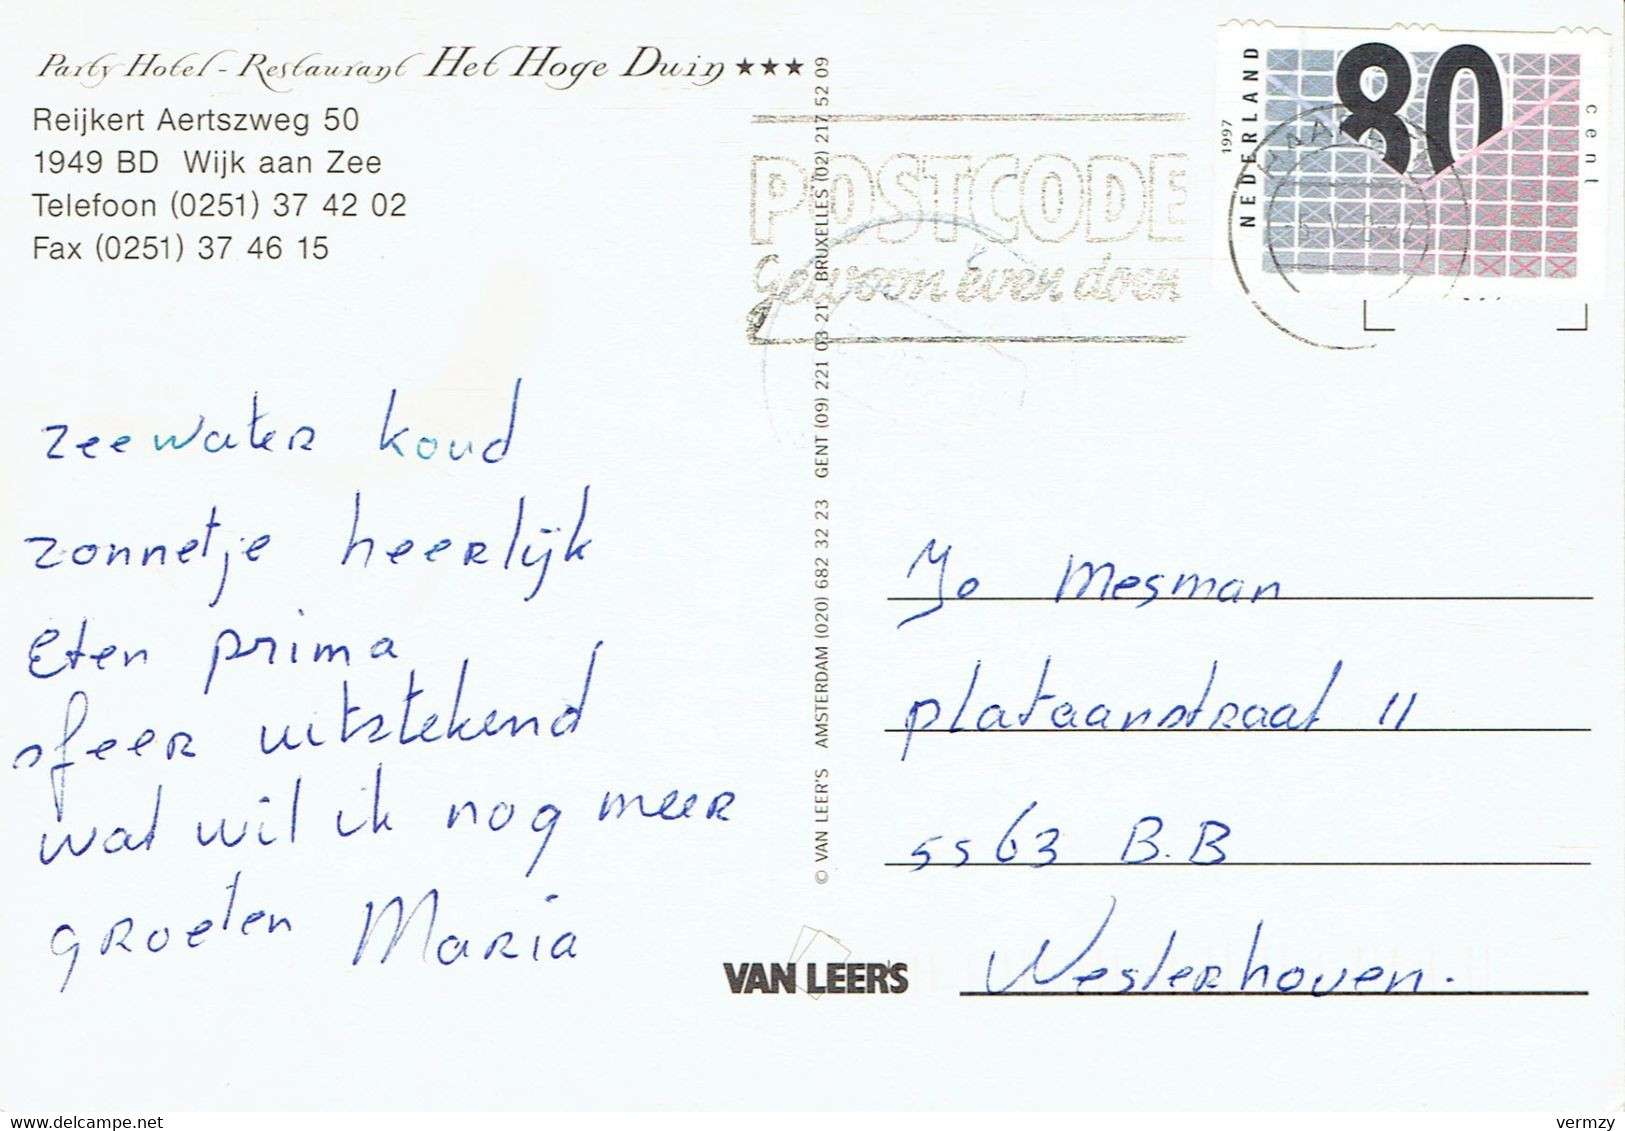 Party Hotel - Restaurant Het Hoge Duin ★★★
Reijkert Aertszweg 50
1949 BD Wijk aan Zee
Telefoon (0251) 37 42 02
Fax (0251) 37 46 15
zeewater koud
zonnetje heerlijk
Eten prima
sfeer uitstekend
wat wil ik nog meer
groeten Maria
© VAN LEER'S AMSTERDAM (020) 682 32 23 GENT (09) 221 03 21 BRUXELLES (02) 217 52 09
VAN LEER'S
POSTCODE
Gewoon even doen
1997
NEDERLAND
80
cent
Jo Mesman
plataanstraat 11
5563 B.B
Westerhoven.
delcampe.net
vermzy